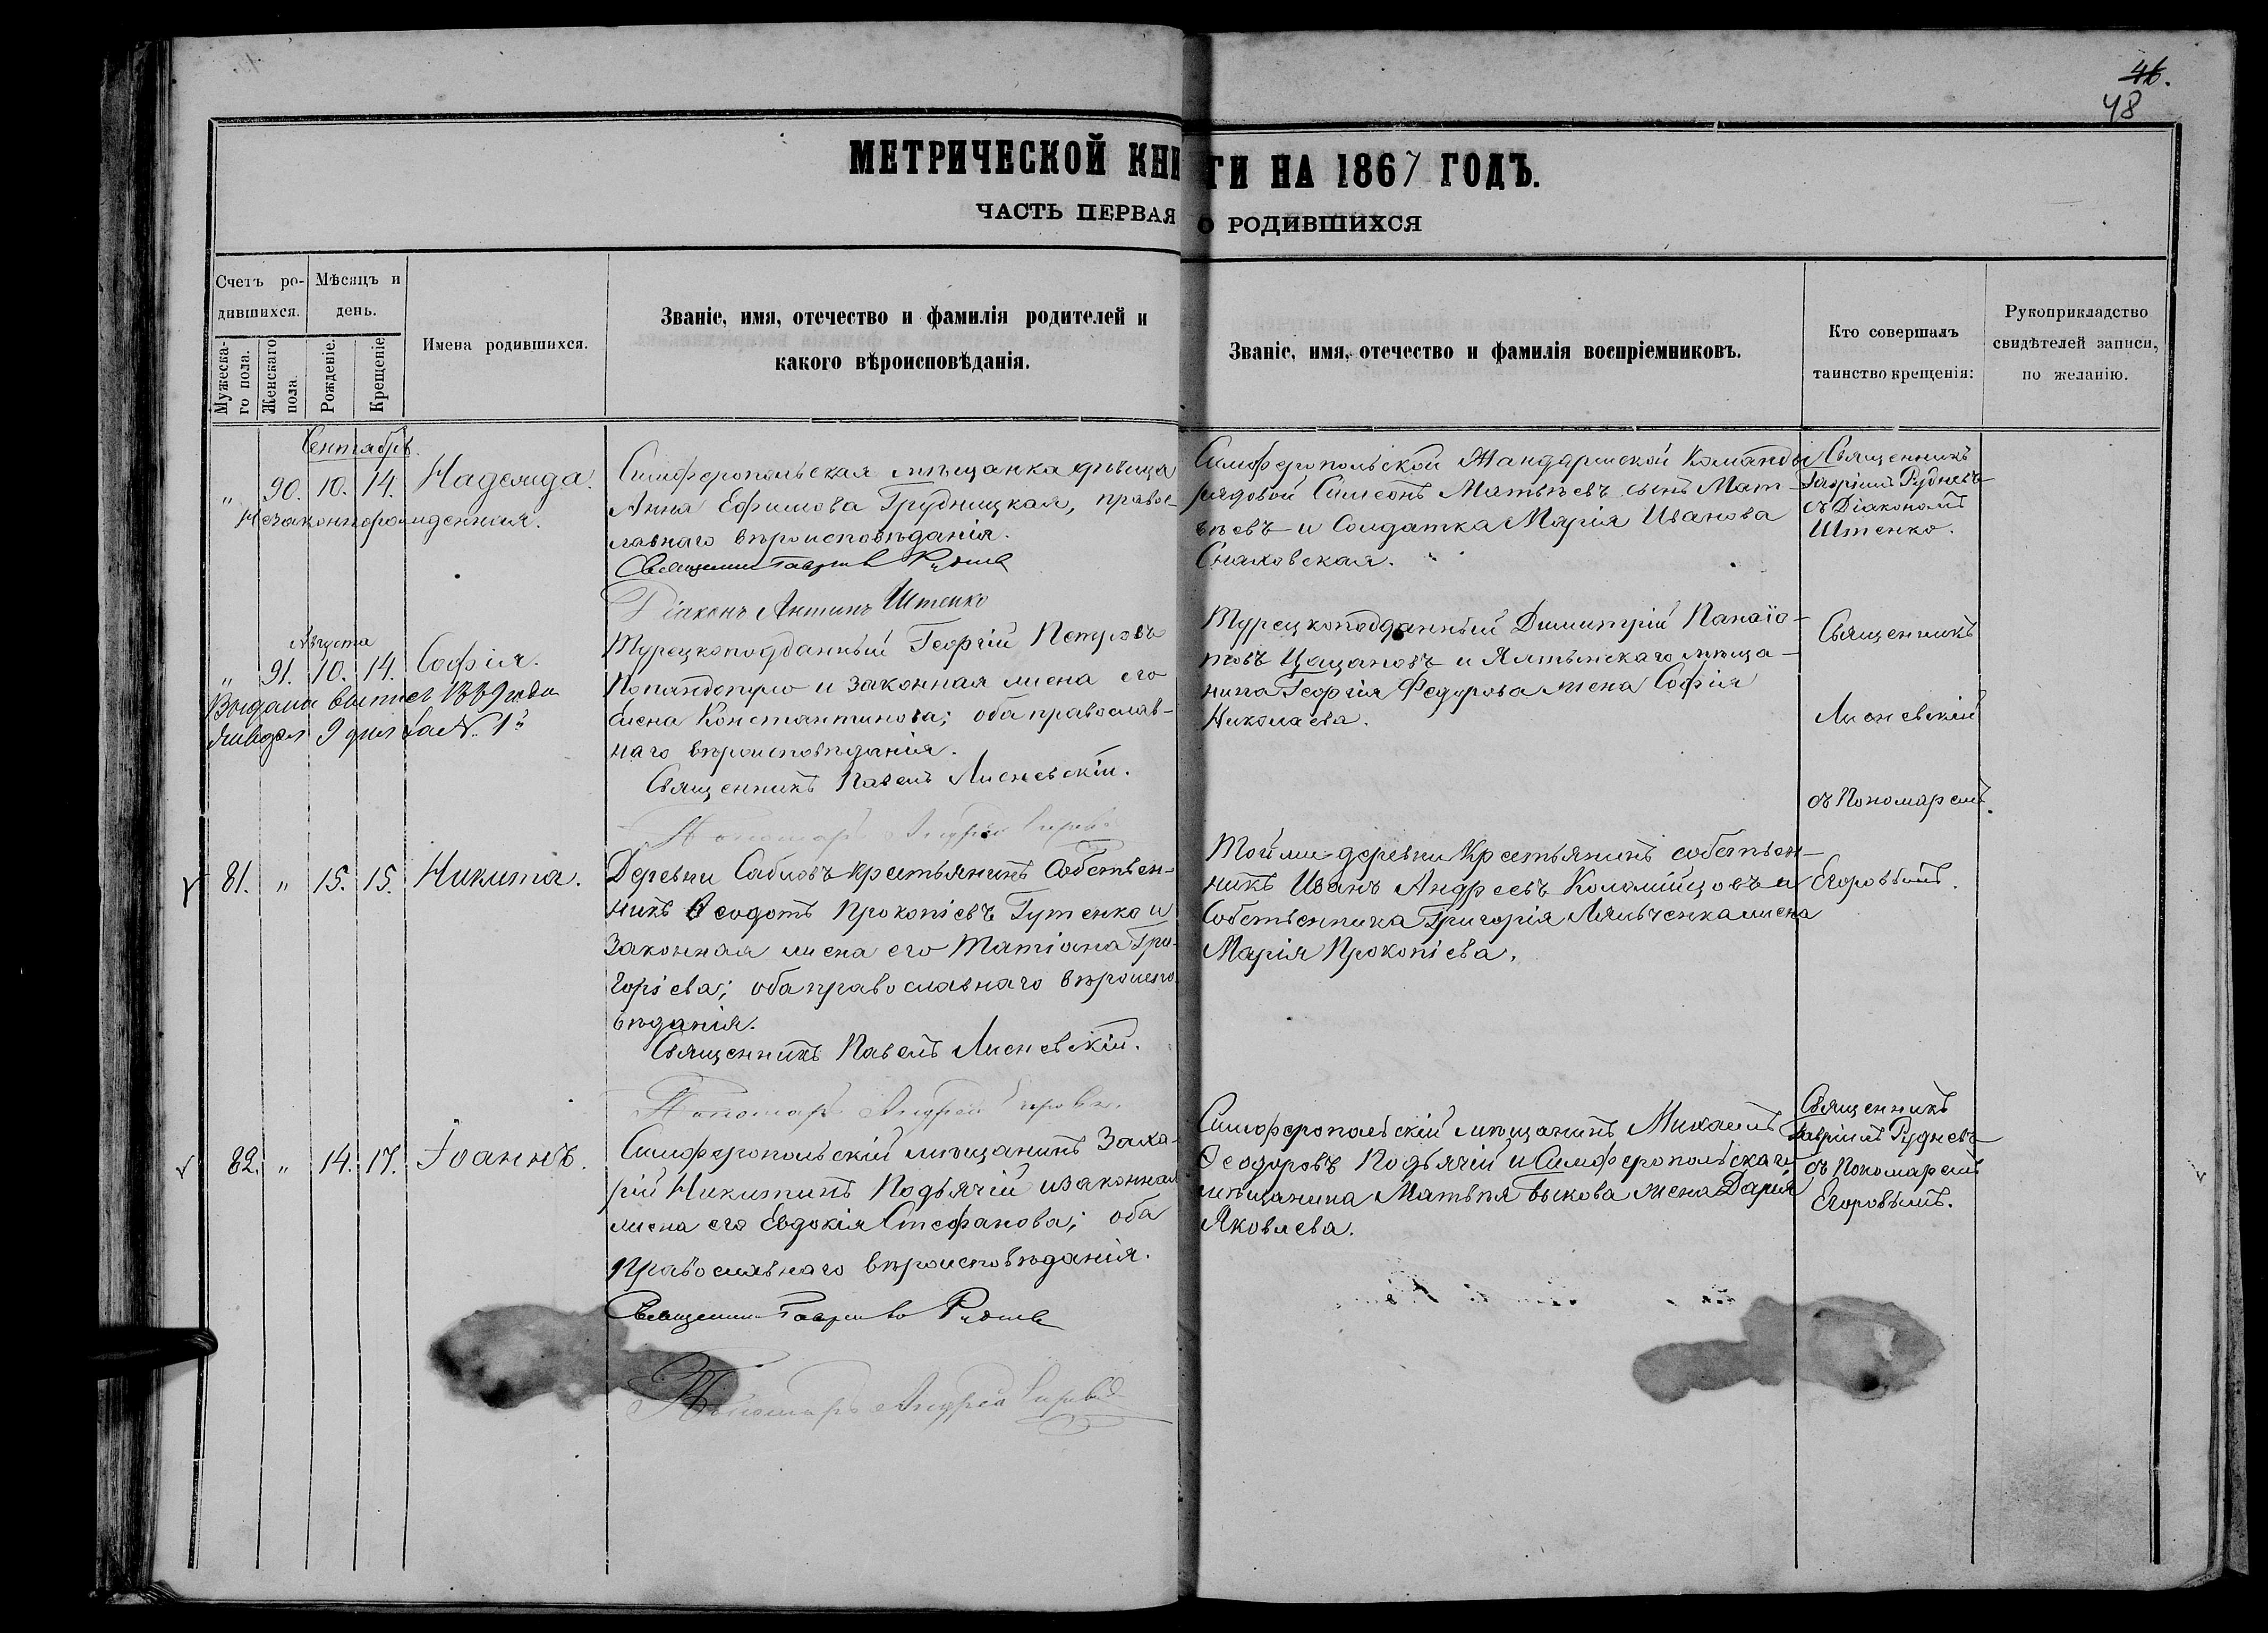 46.
48
МЕТРИЧЕСКОЙ КНИГИ НА 1867 ГОДЪ.
ЧАСТЬ ПЕРВАЯ О РОДИВШИХСЯ
Счетъ ро-
дившихся.
Мужеска-
го пола.
Женскаго
пола.
Мѣсяцъ и
день.
Рожденіе.
Крещеніе
Имена родившихся.
Званіе, имя, отечество и фамилія родителей и
какого вѣроисповѣданія.
Званіе, имя, отечество и фамилія воспріемниковъ.
Кто совершалъ
таинство крещенія:
Рукоприкладство
свидѣтелей записи,
по желанію.
Сентябрь.
" 90. 10. 14. Надежда.
Незаконнорожденная.
Симферопольская мѣщанка дѣвица
Анна Ефимова Грудницкая, правос-
лавнаго вѣроисповѣданія.
Священникъ Гавріилъ Рудневъ
Діаконъ Антинъ Штенко
Симферопольской Жандармской Команды
рядовой Симеонъ Матвѣевъ сынъ Мат-
вѣевъ и Солдатка Марія Иванова
Священникъ
Гавріилъ Рудневъ
съ Діакономъ
Штенко.
Августа
" 91. 10. 14. Софія.
Выдана выпись 1889 года
9 дня за № 1
Турецкоподданный Георгій Петровъ
Попандопуло и законная жена его
Елена Константинова; оба православ-
наго вѣроисповѣданія.
Священникъ Павелъ Лисневскій.
Пономарь Андрей Егоровъ
Турецкоподданный Димитрій Панаіо-
товъ Цацановъ и Ялтинскаго мѣща-
нина Георгія Федорова жена Софія
Николаева.
Священникъ
Лисневскій
съ Пономаремъ
Егоровымъ.
81. " 15. 15. Никита.
Деревни Сабловъ крестьянинъ Собствен-
никъ Ѳеодотъ Прокопіевъ Гутенко и
законная жена его Татіана Гри-
горіева; оба православнаго вѣроиспо-
вѣданія.
Священникъ Павелъ Лисневскій.
Пономарь Андрей Егоровъ.
Той же деревни Крестьянинъ собствен-
никъ Иванъ Андреевъ Коломійцовъ и
Собственника Григорія Ляльченка жена
Марія Прокопіева.
82. " 14. 17. Іоаннъ.
Симферопольскій мѣщанинъ Заха-
рій Никитинъ Подьячій и законная
жена его Евдокія Стефанова; оба
Православнаго вѣроисповѣданія.
Священникъ Гавріилъ Рудневъ
Пономарь Андрей Егоровъ
Симферопольскій мѣщанинъ Михаилъ
Ѳеодоровъ Подьячій и Симферопольскаго
мѣщанина Матвѣя Быкова жена Дарія
Яковлева.
Священникъ
Гавріилъ Рудневъ
съ Пономаремъ
Егоровымъ.